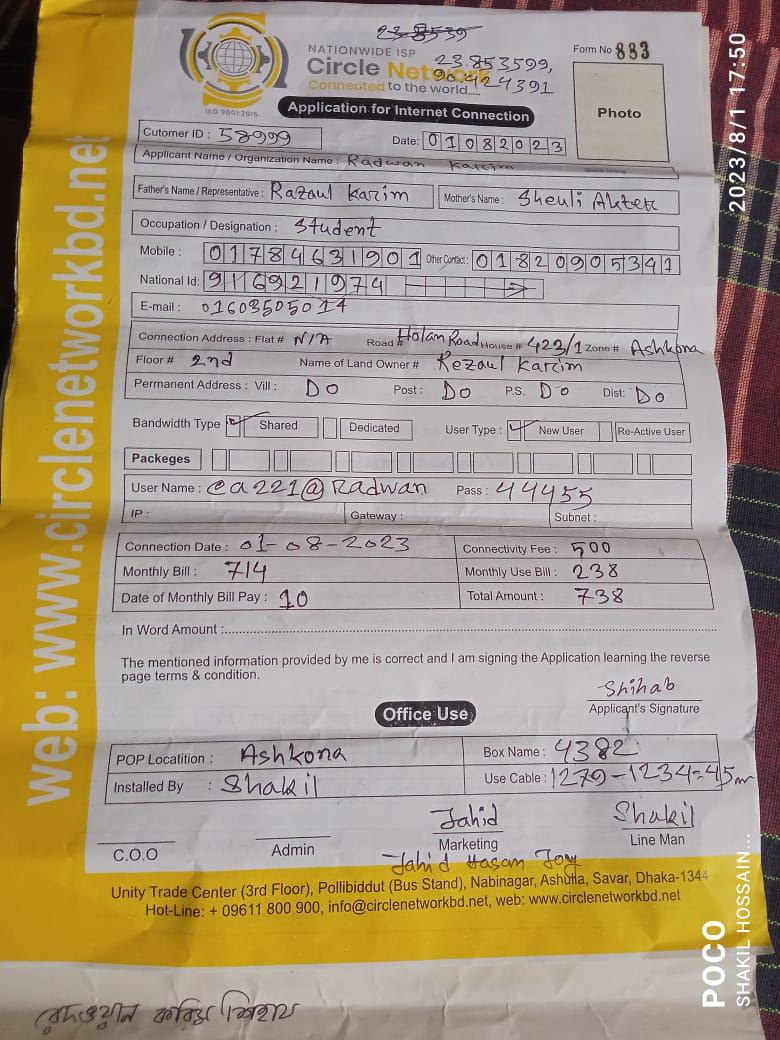 23.8539
NATIONWIDE ISP
Circle Network
Connected to the world.....
23.853599,
90.424391
Form No 883
ISO 9001:2015
Application for Internet Connection
Photo
Cutomer ID : 58999
Date: 01082023
Applicant Name / Organization Name : Radwan Karim
Father's Name / Representative : Razaul Karim
Mother's Name : Sheuli Akter
Occupation / Designation : Student
Mobile : 01784631901 Other Contact : 01820905341
National Id: 9116921974
E-mail : 01603505014
Connection Address : Flat # N/A Road # Holan Road House # 423/1 Zone # Ashkona
Floor # 2nd Name of Land Owner # Rezaul Karim
Permanent Address : Vill : Do Post : Do P.S. Do Dist: Do
Bandwidth Type Shared Dedicated User Type : New User Re-Active User
Packeges
User Name : ca221@Radwan Pass : 44455
IP : Gateway : Subnet :
Connection Date : 01-08-2023 Connectivity Fee : 500
Monthly Bill : 714 Monthly Use Bill : 238
Date of Monthly Bill Pay : 10 Total Amount : 738
In Word Amount :
The mentioned information provided by me is correct and I am signing the Application learning the reverse
page terms & condition.
Shihab
Applicant's Signature
Office Use
POP Locatition : Ashkona Box Name : 4382
Installed By : Shakil Use Cable : 1279-1234=45m
Jahid Shakil
C.O.O Admin Marketing Line Man
Jahid Hasan Joy
Unity Trade Center (3rd Floor), Pollibiddut (Bus Stand), Nabinagar, Ashulia, Savar, Dhaka-1344
Hot-Line: + 09611 800 900, info@circlenetworkbd.net, web: www.circlenetworkbd.net
web: www.circlenetworkbd.net
রেদওয়ান করিম শিহাব
2023/8/1 17:50
POCO
SHAKIL HOSSAIN...